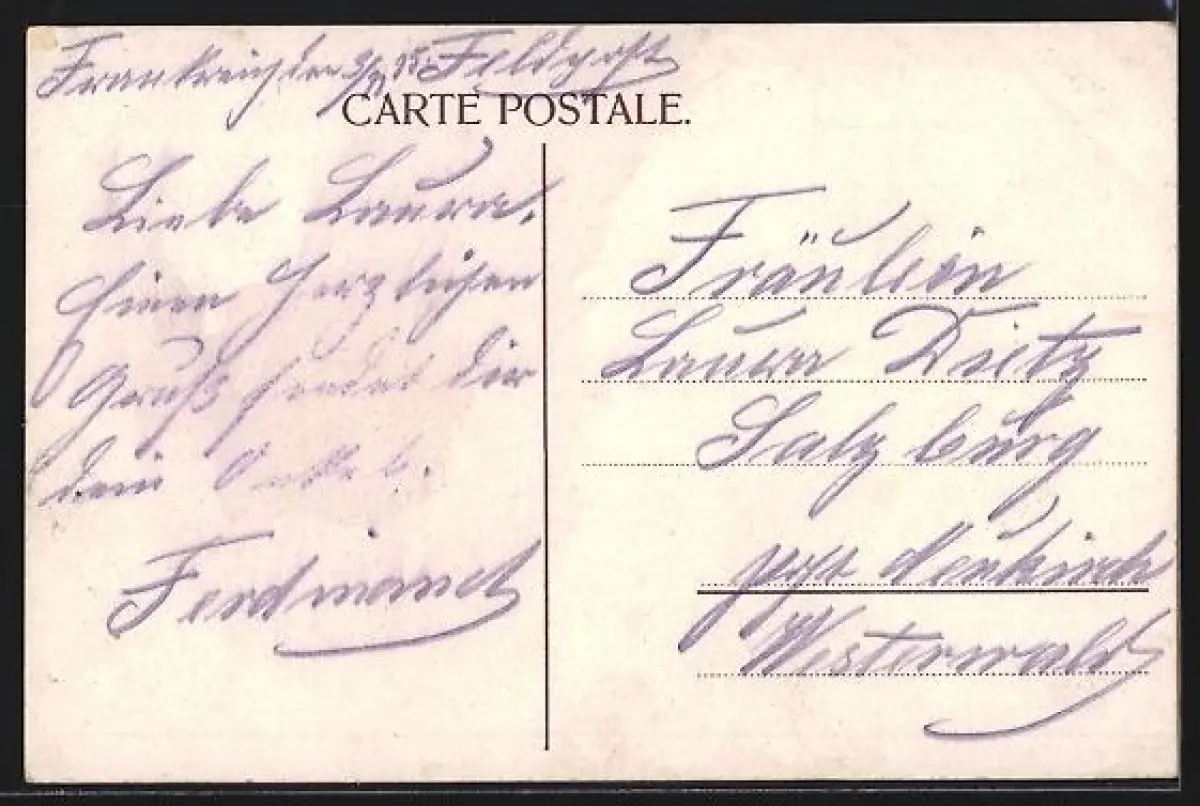 Frankreich den 9/7 15. Feldpost
CARTE POSTALE.
Liebe Laura.
Einen Herzlichen
Gruß sendet dir
dein Onkel.
Ferdinand
Fräulein
Laura Dietz
Salzburg
post Neukirch
Westerwald